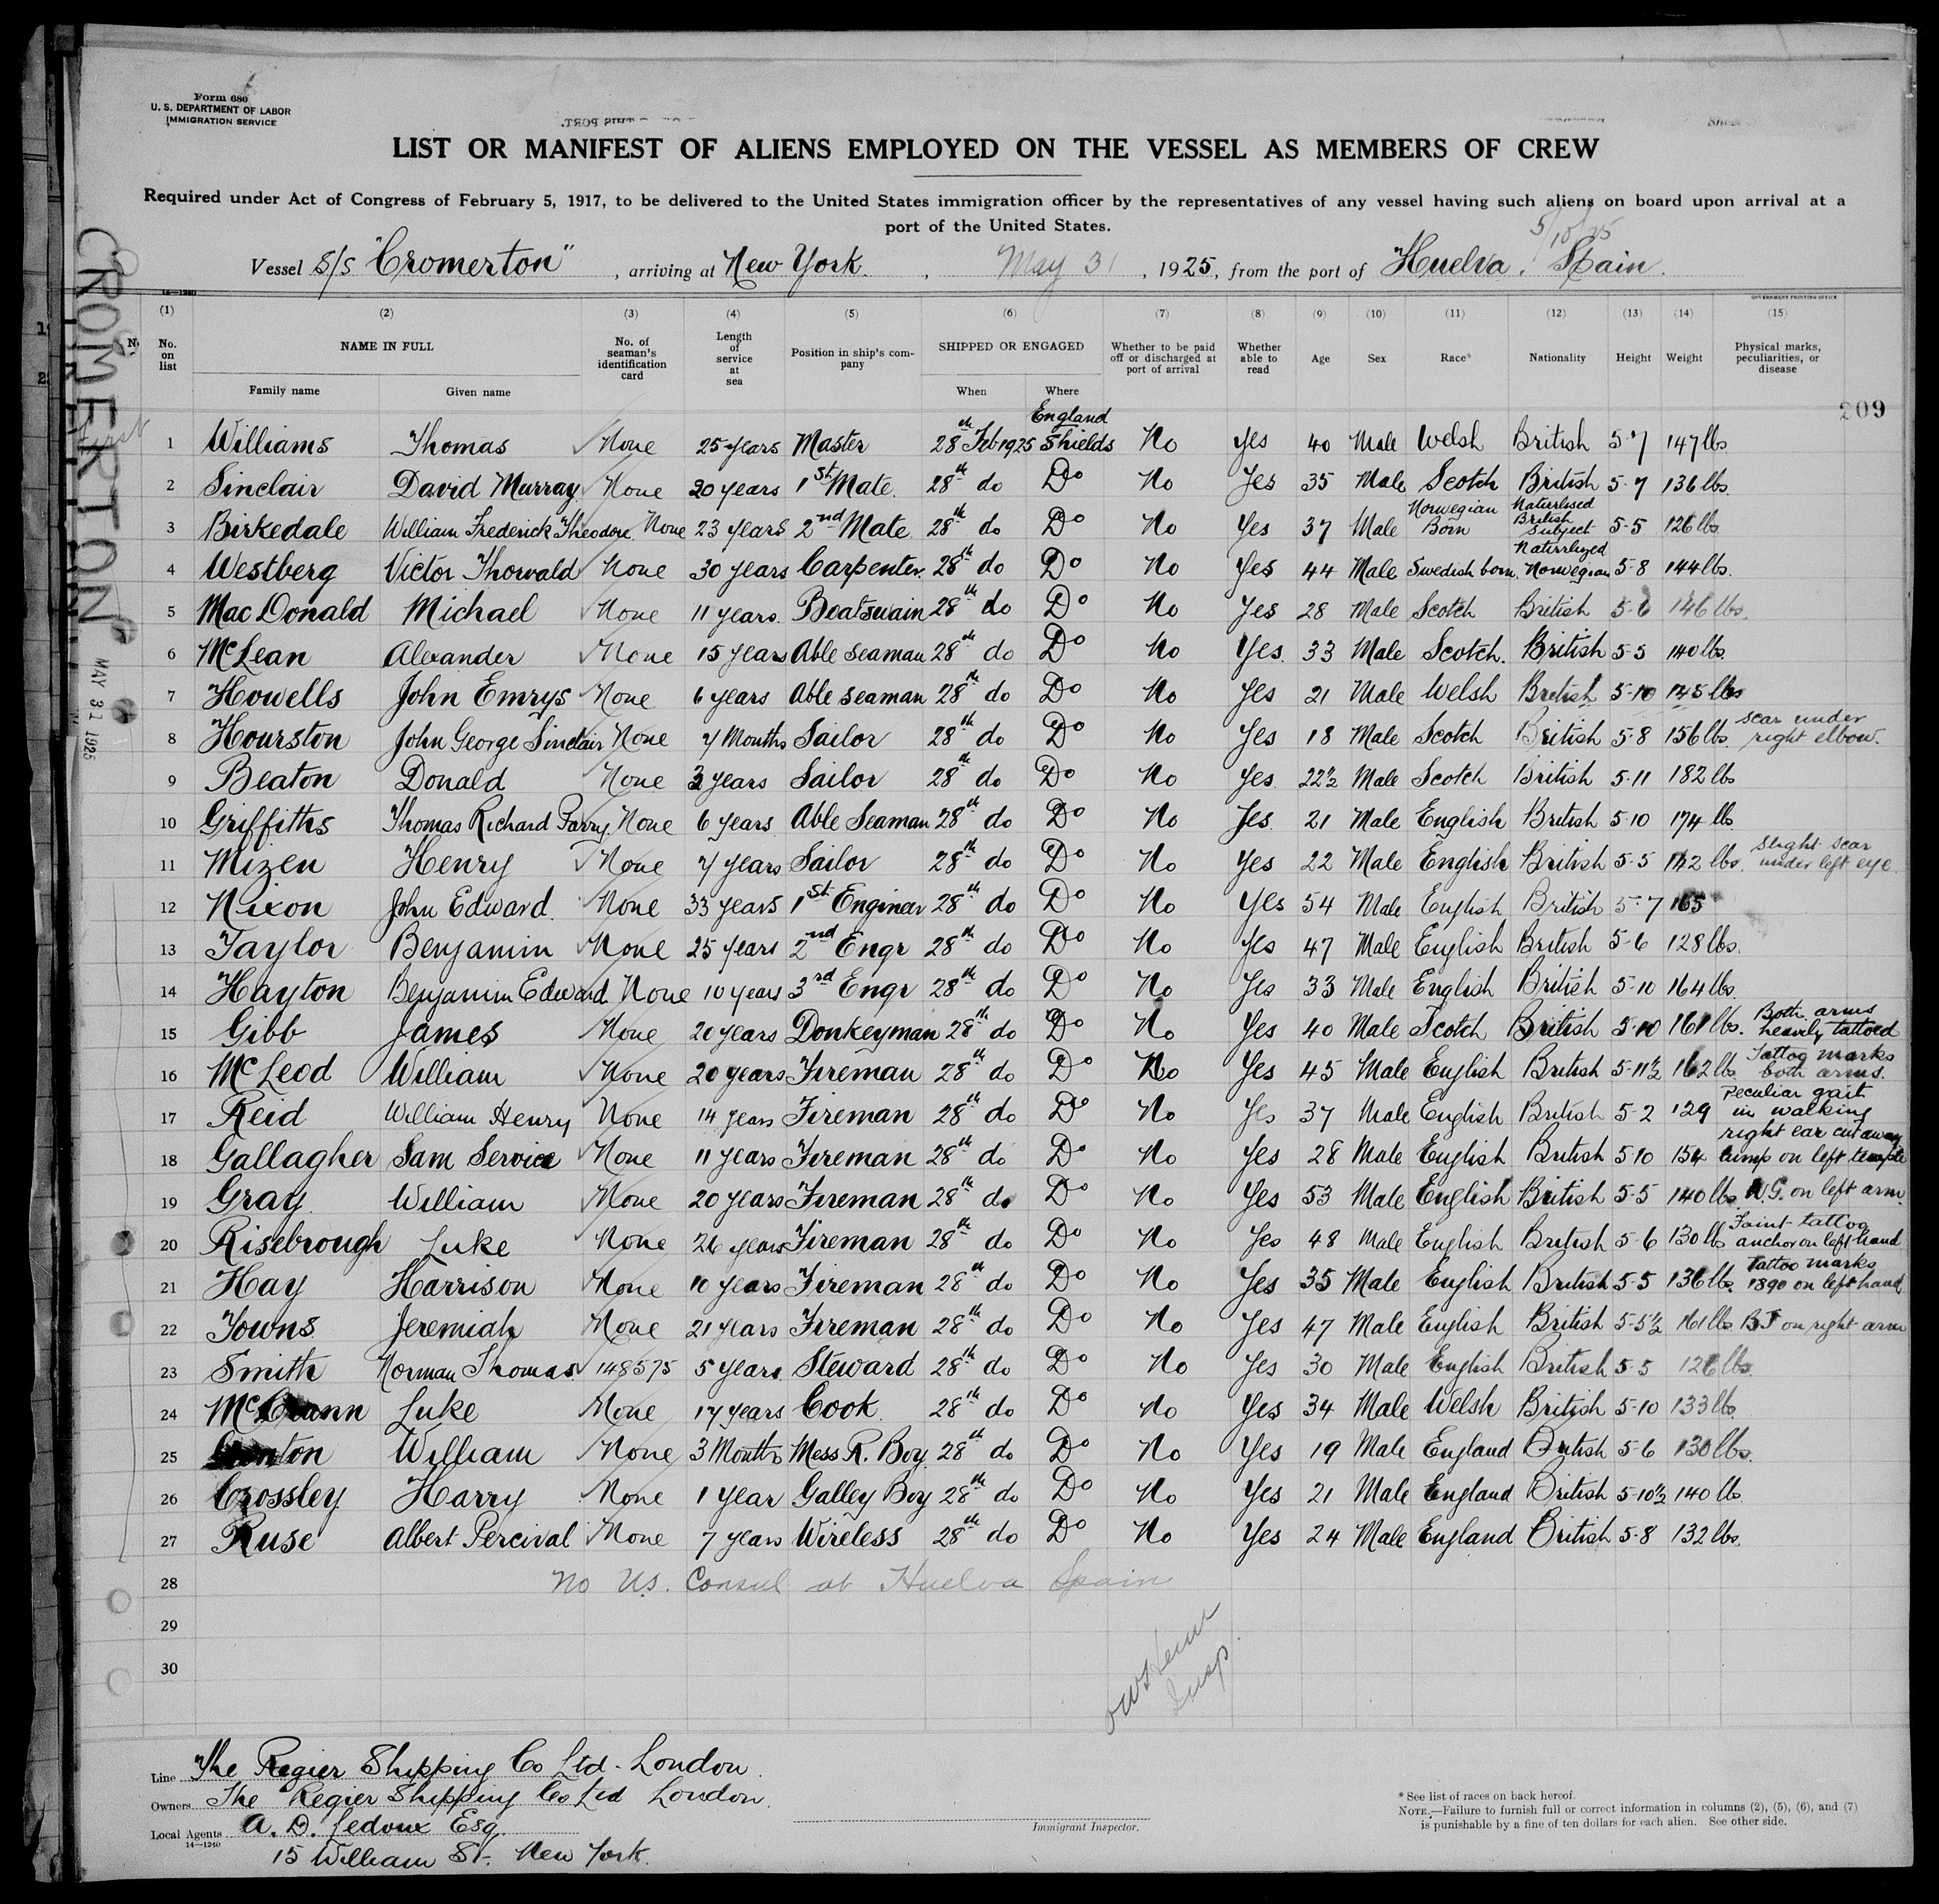 Form 680
U. S. DEPARTMENT OF LABOR
IMMIGRATION SERVICE
LIST OR MANIFEST OF ALIENS EMPLOYED ON THE VESSEL AS MEMBERS OF CREW
Required under Act of Congress of February 5, 1917, to be delivered to the United States immigration officer by the representatives of any vessel having such aliens on board upon arrival at a
port of the United States.
Vessel S/S "Cromerton", arriving at New York, May 31, 1925, from the port of Huelva, Spain.
14—1240
GOVERNMENT PRINTING OFFICE
(1) (2) (3) (4) (5) (6) (7) (8) (9) (10) (11) (12) (13) (14) (15)
No. on list NAME IN FULL Family name Given name No. of seaman's identification card Length of service at sea Position in ship's company SHIPPED OR ENGAGED When Where Whether to be paid off or discharged at port of arrival Whether able to read Age Sex Race* Nationality Height Weight Physical marks, peculiarities, or disease
209
CROMERTON
MAY 31 1925
1 Williams Thomas None 25 years Master 28th Feb 1925 England Shields No Yes 40 Male Welsh British 5-7 147 lbs
2 Sinclair David Murray None 20 years 1st Mate. 28th do Do No Yes 35 Male Scotch British 5-7 136 lbs.
3 Birkedale William Frederick Theodore None 23 years 2nd Mate 28th do Do No Yes 37 Male Norwegian Born Naturlised British Subject 5-5 126 lbs
4 Westberg Victor Thorvald None 30 years Carpenter. 28th do Do No Yes 44 Male Swedish born. Naturalyzed Norwegian 5-8 144 lbs.
5 Mac Donald Michael None 11 years. Boatswain 28th do Do No Yes 28 Male Scotch British 5-6 146 lbs.
6 McLean Alexander None 15 years Able Seaman 28th do Do No Yes. 33 Male Scotch. British 5-5 140 lbs.
7 Howells John Emrys None 6 years Able seaman 28th do Do No Yes 21 Male Welsh British 5-10 145 lbs
8 Hourston John George Sinclair None 7 Months Sailor 28th do Do No Yes 18 Male Scotch British 5-8 156 lbs. scar under right elbow.
9 Beaton Donald None 3 years Sailor 28th do Do No Yes. 22½ Male Scotch British 5-11 182 lbs
10 Griffiths Thomas Richard Parry. None 6 years Able Seaman 28th do Do No Yes. 21 Male English British 5-10 174 lb.
11 Mizen Henry None 7 years Sailor 28th do Do No Yes 22 Male English British 5-5 142 lbs. slight scar under left eye.
12 Nixon John Edward. None 33 years 1st Engineer 28th do Do No Yes 54 Male English British 5-7 165
13 Taylor Benjamin None 25 years 2nd Engr 28th do Do No Yes 47 Male English British 5-6 128 lbs.
14 Hayton Benjamin Edward None 10 years 3rd Engr 28th do Do No Yes 33 Male English British 5-10 164 lbs.
15 Gibb James None 20 years Donkeyman 28th do Do No Yes 40 Male Scotch British 5-10 161 lbs. Both arms heavily tattoed
16 McLeod William None 20 years Fireman 28th do Do No Yes 45 Male English British 5-11½ 162 lbs Tattoo marks both arms.
17 Reid William Henry None 14 years Fireman 28th do Do No Yes 37 Male English British 5-2 129 Peculiar gait in walking
18 Gallagher Sam Service None 11 years Fireman 28th do Do No Yes 28 Male English British 5-10 154 right ear cut away lump on left temple
19 Gray William None 20 years Fireman 28th do Do No Yes 53 Male English British 5-5 140 lbs. W.G. on left arm
20 Risebrough Luke None 26 years Fireman 28th do Do No Yes 48 Male English British 5-6 130 lbs Faint tattoo anchor on left hand
21 Hay Harrison None 10 years Fireman 28th do Do No Yes 35 Male English British 5-5 136 lbs. Tattoo marks 1890 on left hand
22 Towns Jeremiah None 21 years Fireman 28th do Do No Yes 47 Male English British 5-5½ 161 lbs. on right arm
23 Smith Norman Thomas. 148575 5 years Steward 28th do Do No Yes 30 Male English British 5-5 126 lbs.
24 Luke None 17 years Cook. 28th do Do No Yes 34 Male Welsh British 5-10 133 lbs.
25 William None 3 Months Mess R. Boy. 28th do Do No Yes 19 Male England British 5-6 130 lbs.
26 Crossley Harry None 1 year Galley Boy 28th do Do No Yes 21 Male England British 5-10½ 140 lb.
27 Ruse Albert Percival None 7 years Wireless 28th do Do No Yes 24 Male England British 5-8 132 lbs.
28 No U.S. Consul at Huelva Spain
29
30
Insp.
Line The Regier Shipping Co Ltd - London.
Owners The Regier Shipping Co Ltd London.
Local Agents A. D. Ledoux Esq.
14—1240
15 William St. New York.
Immigrant Inspector.
* See list of races on back hereof.
NOTE.—Failure to furnish full or correct information in columns (2), (5), (6), and (7)
is punishable by a fine of ten dollars for each alien. See other side.